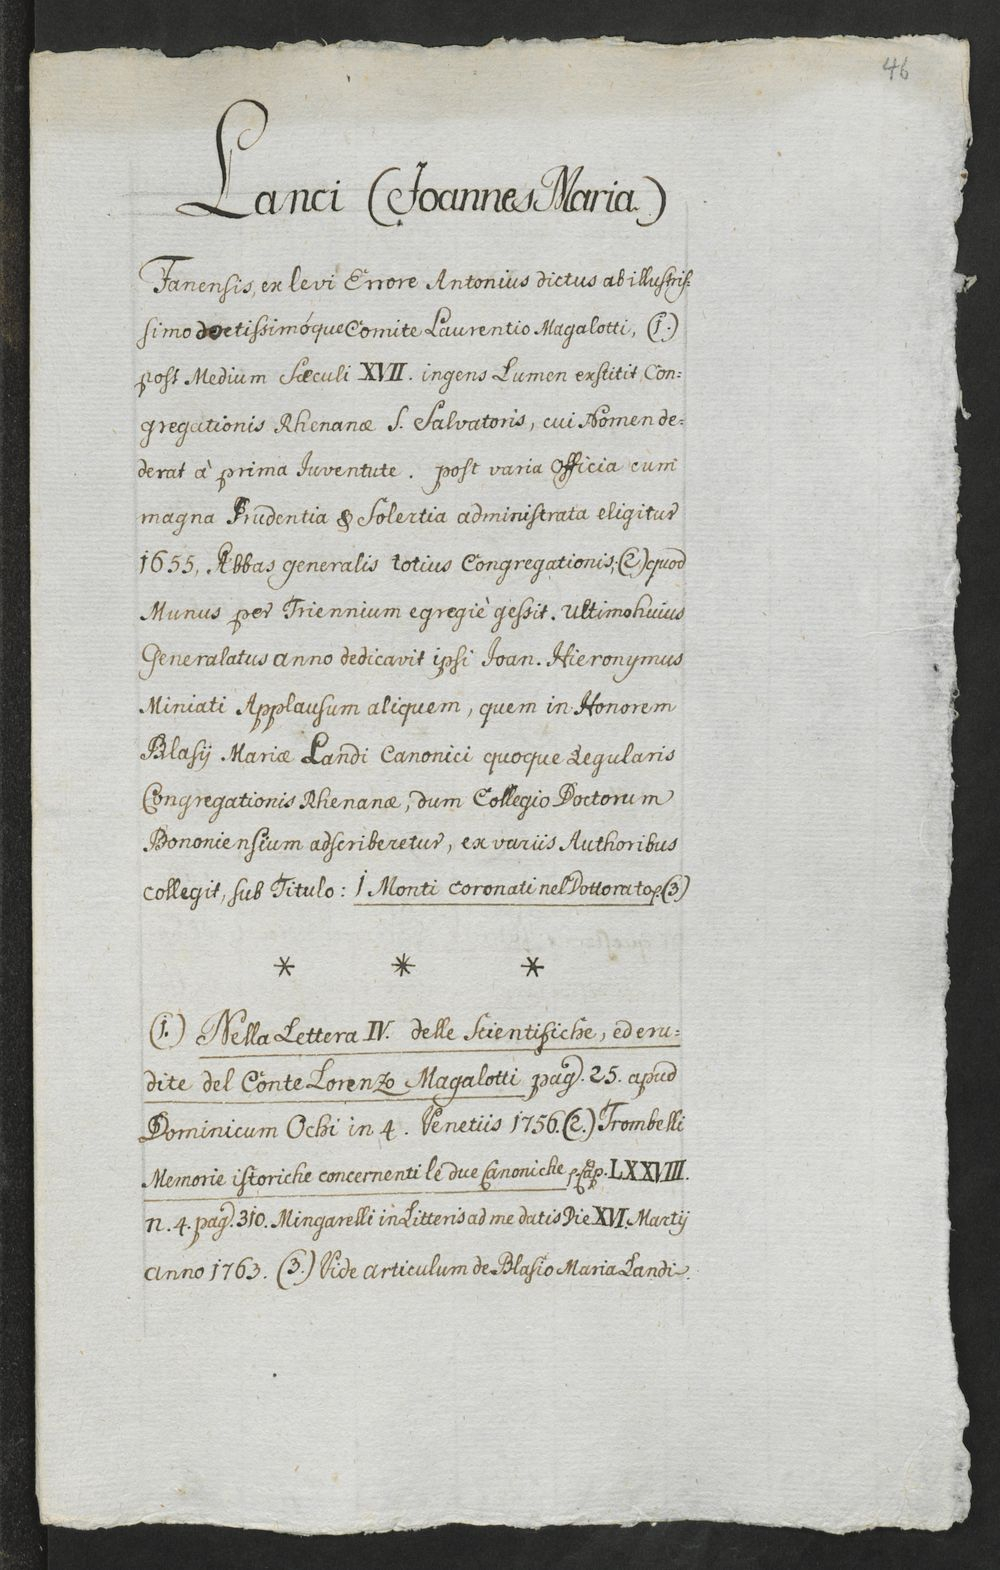 46
Lanci (Joannes Maria.)
Fanensis, ex levi Errore Antonius dictus ab illustris:
simo doctissimóque Comite Laurentio Magalotti, (1.)
post Medium Sæculi XVII. ingens Lumen exstitit Con:
gregationis Rhenanæ S. Salvatoris, cui Nomen de:
derat à prima Iuventute. post varia Officia cum
magna Prudentia & Solertia administrata eligitur
1655, Abbas generalis totius Congregationis; (2) quod
Munus per Triennium egregiè gessit. Ultimo huius
Generalatus anno dedicavit ipsi Joan. Hieronymus
Miniati Applausum aliquem, quem in Honorem
Blasij Mariæ Landi Canonici quoque Regularis
Congregationis Rhenanæ, dum Collegio Doctorum
Bononiensium adscriberetur, ex variis Authoribus
collegit, sub Titulo: I Monti coronati nel Dottorato p. (3)
* * *
(1.) Nella Lettera IV. delle Scientifiche, ed eru:
dite del Conte Lorenzo Magalotti pag. 25. apud
Dominicum Ochi in 4. Venetiis 1756. (2.) Trombelli
Memorie istoriche concernenti le due Canoniche p. cap. LXXVIII.
n. 4. pag. 310. Mingarelli in Litteris ad me datis Die XVI. Martij
anno 1763. (3.) Vide articulum de Blasio Maria Landi.